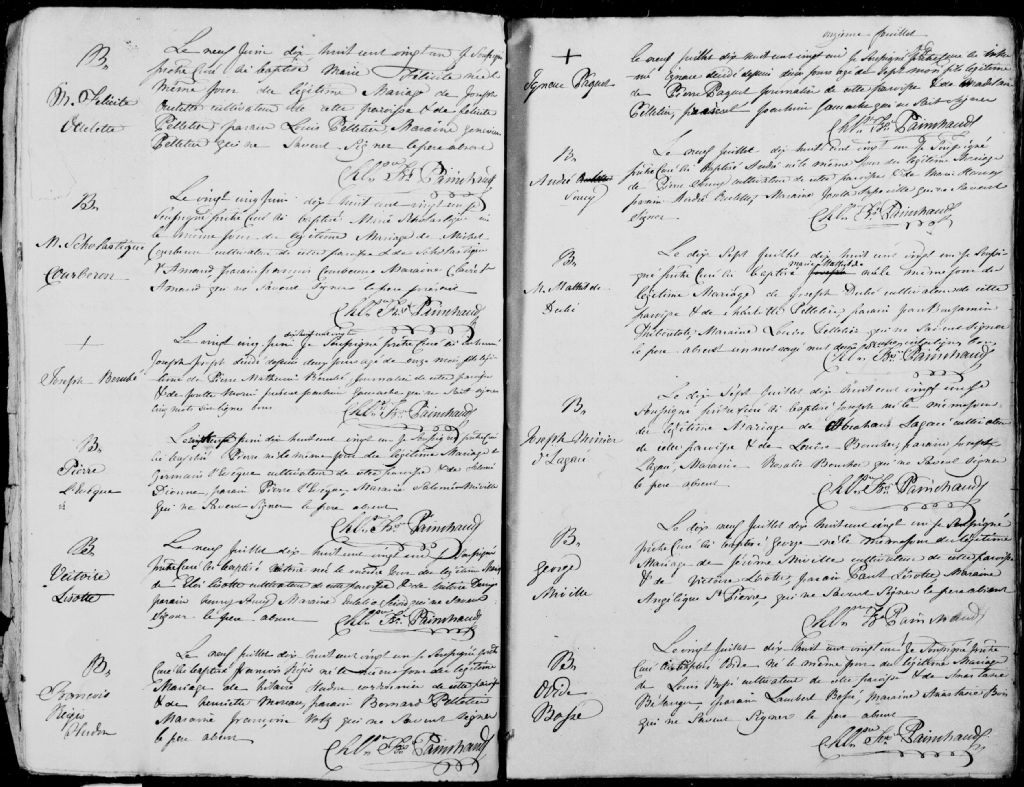 B.
M. Félicité
Ouelette
Le neuf Juin dix huit cent vingt un Je Soussigné
prêtre Curé ai baptisé Marie Félicité née le
même jour du légitime Mariage de Joseph
Ouelette cultivateur de cette paroisse & de
Pelletier parain Louis Pelletier Maraine
Pelletier qui ne Savent Signer le pere absent
Chls. Frs. Painchaud
B.
M. Scholastique
Courberon
Le vingt cinq Juin dix huit cent vingt un Je
Soussigné prêtre Curé ai baptisé Marie Scholastique née
le même jour du légitime Mariage de Michel
Courberon cultivateur de cette paroisse & de Scholastique
St Amand parain François Courberon Maraine
Amand qui ne Savent Signer le pere présent
Chls. Frs. Painchaud
+
Joseph Berubé
dix huit cent vingt
Le vingt cinq Juin Je Soussigné prêtre Curé ai inhumé
Joseph décédé depuis deux jours agé de onze mois fils légi-
time de Pierre Mathurin Berubé Journalier de cette paroisse
& de Morin présent Joachim Gamache qui ne Sait signer
cinq mots Surlignés bons
Chls. Frs. Painchaud
B.
Pierre
L'Evêque
Juin dix huit cent vingt un Je Soussigné prêtre Curé
ai baptisé Pierre né le même jour du légitime Mariage de
Germain L'Evêque cultivateur de cette paroisse & de Salomé
Dionne, parain Pierre L'Evêque, Maraine Salomée Miville
qui ne Savent Signer le pere absent.
Chls. Frs. Painchaud
B.
Victoire
Lisotte
Le neuf Juillet dix huit cent vingt un Je Soussigné
prêtre Curé ai baptisé Victoire née le même jour du légitime Mariage
de Lisotte cultivateur de cette paroisse & de Victoire
parain Maraine qui ne Savent
Signer le pere absent
Chls. Frs. Painchaud
B.
François
Régis
Hudon
Le neuf Juillet dix huit cent vingt un Je Soussigné prêtre
Curé ai baptisé François Régis né le même jour du légitime
Mariage de Hilaire Hudon cordonnier de cette paroisse
& de henriette Moreau, parain Bernard Pelletier
Maraine françoise qui ne Savent Signer
le pere absent
Chls. Frs. Painchaud
onzieme feuillet
+
Ignace Paquet
Le neuf Juillet dix huit cent vingt un Je Soussigné prêtre Curé ai inhu-
mé Ignace décédé depuis deux jours agé de Sept mois fils légitime
de Pierre Paquet Journalier de cette paroisse & de Madelaine
Pelletier, présent Joachim Gamache qui ne Sait Signer
Chls. Frs. Painchaud
B.
André
Soucy
Le neuf Juillet dix huit cent vingt un Je Soussigné
prêtre Curé ai baptisé André né le même jour du légitime Mariage
de Pierre Soucy cultivateur de cette paroisse & de Marie
parain André Maraine qui ne Savent
Signer
Chls. Frs. Painchaud
B.
M. Mathilde
Dubé
Le dix Sept Juillet dix huit cent vingt un Je Soussi-
gné prêtre Curé ai baptisé marie Mathilde née le même jour du
légitime Mariage de Joseph Dubé cultivateur de cette
paroisse & de Pelletier, parain Jean Benjamin
Thiboutot, Maraine Louise Pelletier qui ne Savent Signer
le pere absent un mot rayé nul deux bons
Chls. Frs. Painchaud
B.
Joseph Misier
d'Lagacé
Le dix Sept Juillet dix huit cent vingt un Je
Soussigné prêtre Curé ai baptisé Joseph né le même jour
du légitime Mariage de Abraham Lagacé cultivateur
de cette paroisse & de Louise Boucher, parain Joseph
Lagacé, Maraine Rosalie Boucher qui ne Savent Signer
le pere absent
Chls. Frs. Painchaud
B.
George
Miville
Le dix neuf Juillet dix huit cent vingt un Je Soussigné
prêtre Curé ai baptisé George né le même jour du légitime
Mariage de Jérôme Miville cultivateur de cette paroisse
& de Victoire Lisotte, parain Paul Lisotte Maraine
Angélique St Pierre, qui ne Savent Signer le pere absent
Chls. Frs. Painchaud
B.
Ovide
Bossé
Le vingt Juillet dix huit cent vingt un Je Soussigné prêtre
Curé ai baptisé Ovide né le même jour du légitime Mariage
de Louis Bossé cultivateur de cette paroisse & de Anastasie
Bélanger parain Lambert Bossé, Maraine Anastasie
qui ne Savent Signer le pere absent
Chls. Frs. Painchaud